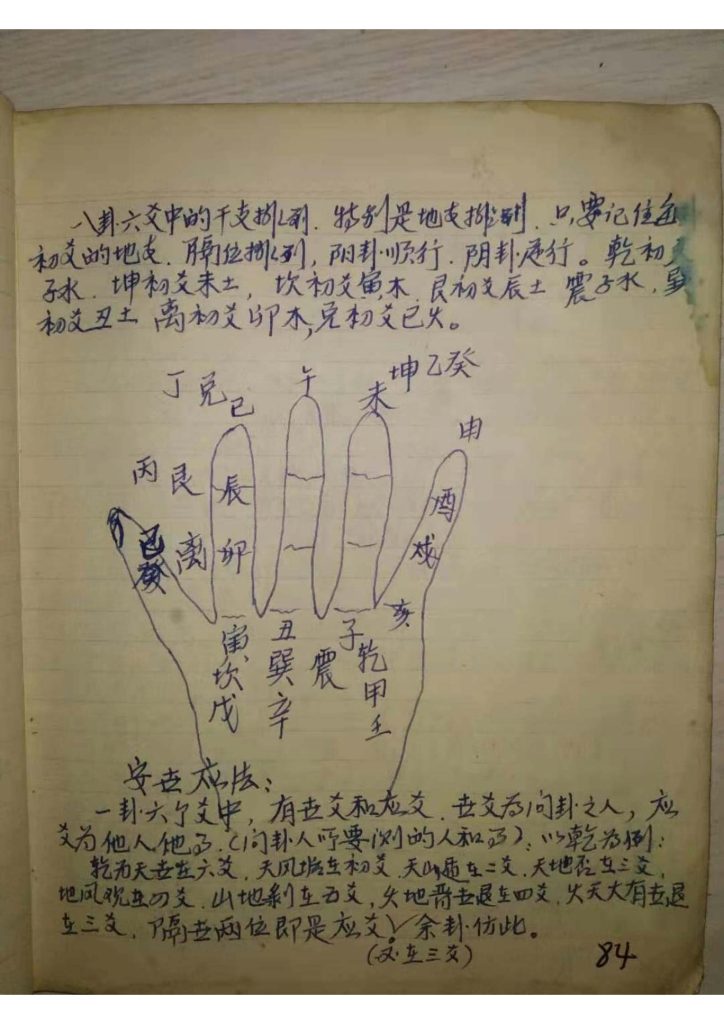 八卦六爻中的干支排列.特别是地支排列.只要记住
初爻的地支.隔位排列,阳卦顺行.阴卦逆行。乾初
子水.坤初爻未土,坎初爻寅木.艮初爻辰土 震子水.
初爻丑土 离初爻卯木,兑初爻巳火。
丁 兑 巳 午 未 坤乙癸
申
丙 艮 辰 酉
离 卯 戌
亥
寅坎戊
丑巽辛
震
子乾甲壬
安世应法:
一卦六个爻中,有世爻和应爻.世爻为问卦之人,应
爻为他人他事.(问卦人所要识别的人和事):以乾为例:
乾为天世在六爻.天风垢在初爻.天山盾在二爻.天地否在三爻,
地风观在四爻.山地剥在五爻,火地晋世退在四爻.火天大有世退
在三爻.隔世两位即是应爻。余卦仿此。
(又在三爻)
84